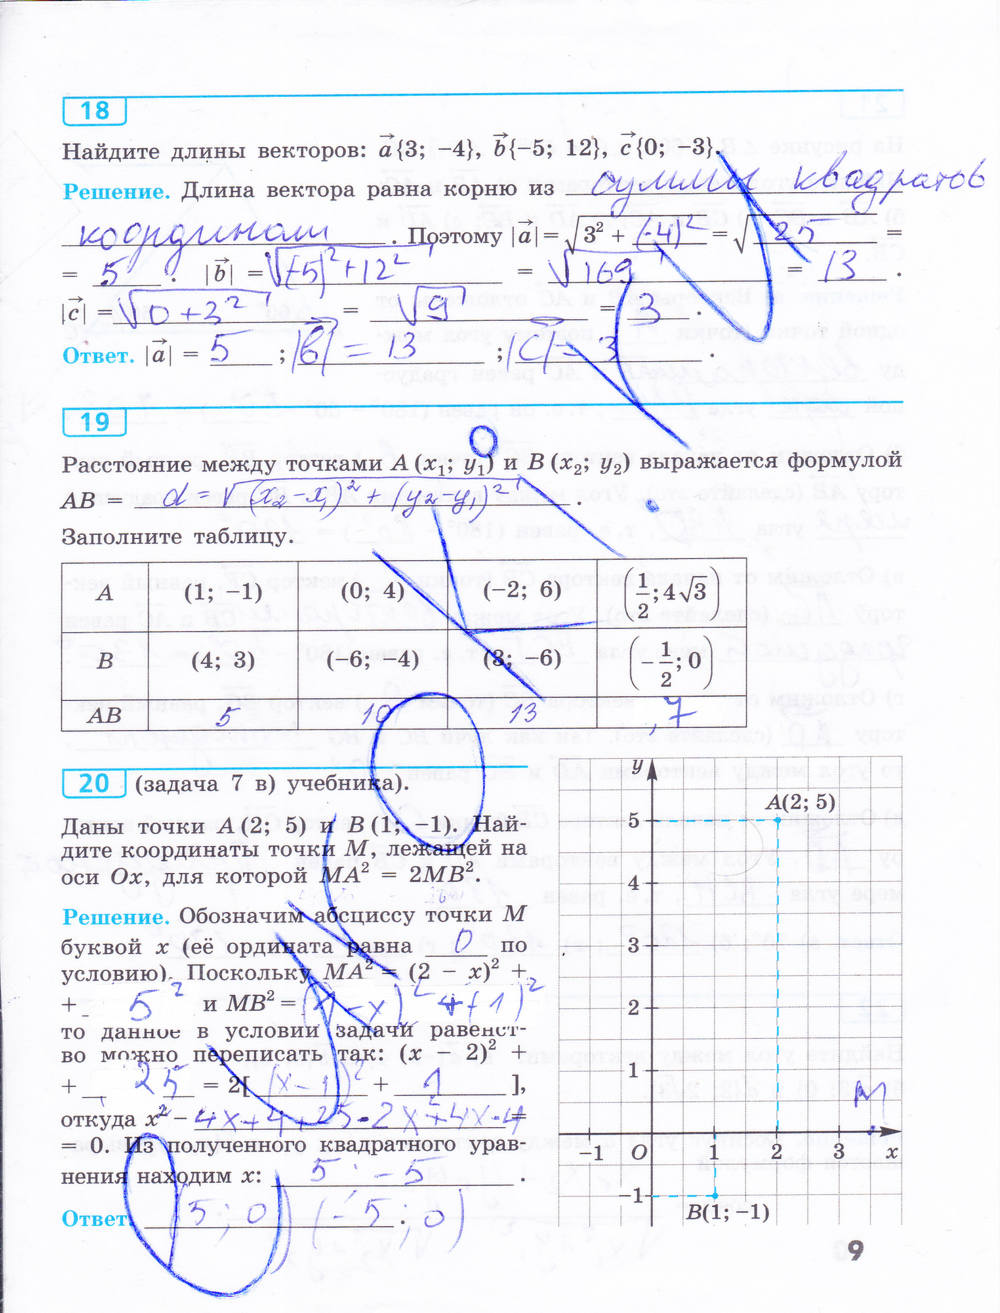 18
Найдите длины векторов: a{3; −4}, b{−5; 12}, c{0; −3}.
Решение. Длина вектора равна корню из суммы квадратов
координат. Поэтому |a| = √3² + (-4)² = √25 =
= 5. |b| = √(-5)² + 12² = √169 = 13.
|c| = √0 + 3² = √9 = 3.
Ответ. |a| = 5; |b| = 13; |c| = 3.
19
Расстояние между точками A (x₁; y₁) и B (x₂; y₂) выражается формулой
AB = d = √(x₂-x₁)² + (y₂-y₁)².
Заполните таблицу.
A (1; −1) (0; 4) (−2; 6) (1/2; 4√3)
B (4; 3) (−6; −4) (3; −6) (−1/2; 0)
AB 5 10 13 7
20 (задача 7 в) учебника).
Даны точки A (2; 5) и B (1; −1). Най-
дите координаты точки M, лежащей на
оси Ox, для которой MA² = 2MB².
Решение. Обозначим абсциссу точки M
буквой x (её ордината равна 0 по
условию). Поскольку MA² = (2 − x)² +
+ 5² и MB² = (1-x)² + (1)²
то данное в условии задачи равенст-
во можно переписать так: (x 2)² +
+ 25 = 2[(x-1)² + 1],
откуда x² − 4x+4+25-2x²+4x-4 =
= 0. Из полученного квадратного урав-
нения находим x: 5; -5.
Ответ. (5; 0) (-5; 0)
y
A(2; 5)
5
4
3
2
1
M
−1 O 1 2 3 x
−1
B(1; −1)
9